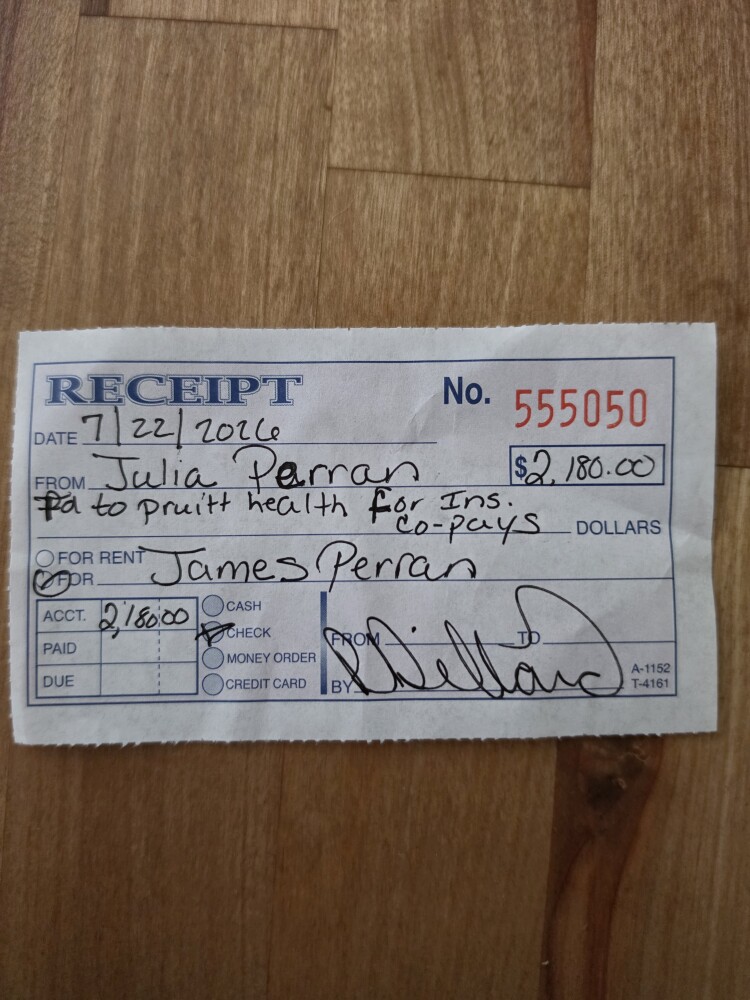 RECEIPT No. 555050
DATE 7/22/2026
FROM Julia Perran $2,180.00
Pd to pruitt health for Ins.
co-pays DOLLARS
FOR RENT
FOR James Perran
ACCT. 2,180.00
PAID
DUE
CASH
CHECK
MONEY ORDER
CREDIT CARD
FROM TO
BY
A-1152
T-4161